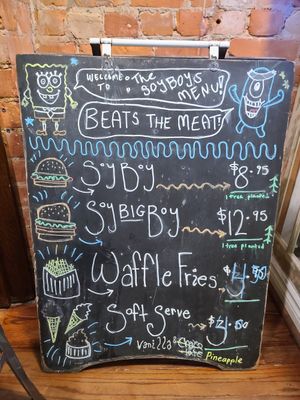 WELCOME TO The SOYBOYS MENU!
BEATS THE MEAT!
Soy Boy $8.95
1 tree planted
Soy BIG Boy $12.95
1 tree planted
Waffle Fries
Soft Serve
vanilla &
Pineapple